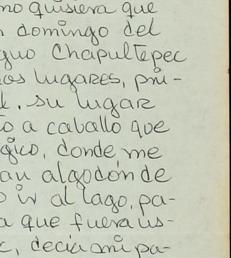 no quisiera que
domingo del
guo Chapultepec
os lugares, pri-
su lugar
o a caballo que
gico, donde me
an algodón de
ir al lago, pa-
a que fuera us-
decía mi pa-